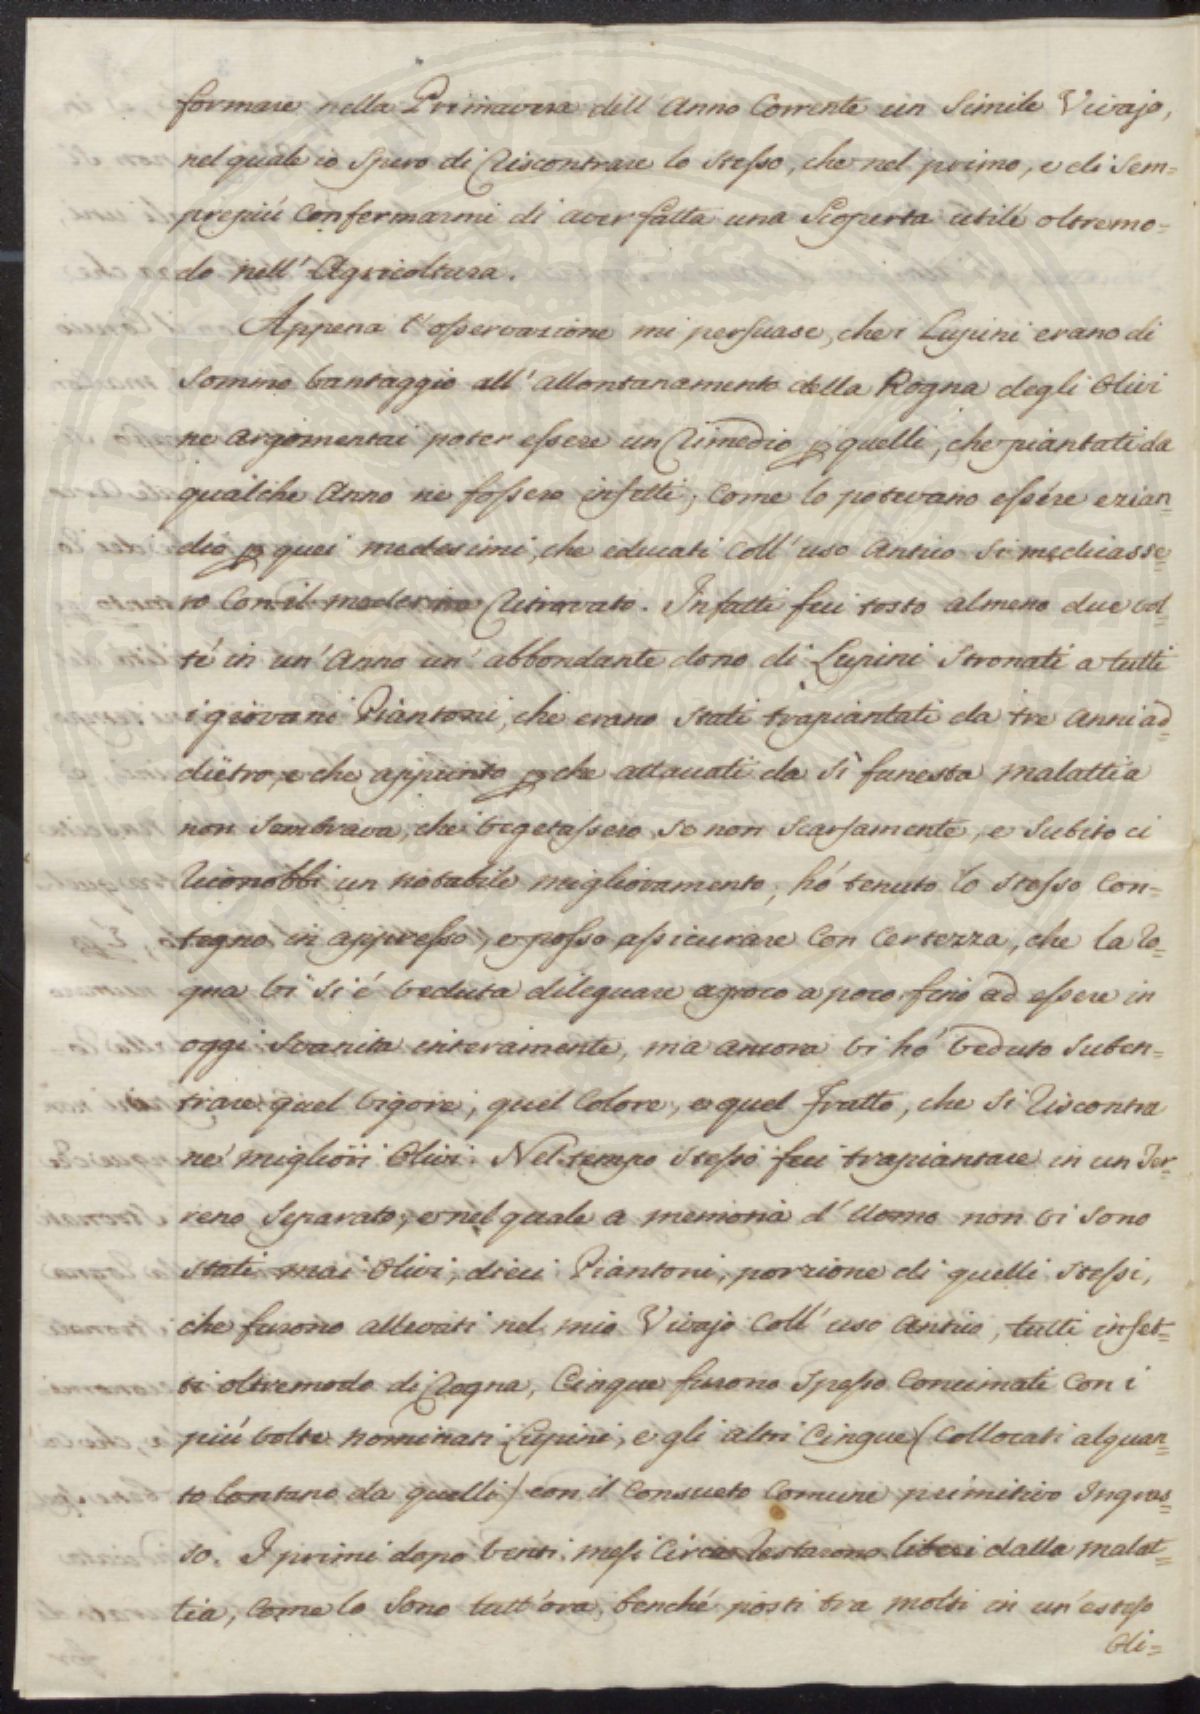 formare nella Primavera dell'Anno Corrente un Simile Vivajo,
nel quale io Spero di Riscontrare lo Stesso, che nel primo, e di Sem=
prepiú Confermarmi di aver fatta una Scoperta utile oltremo=
do nell'Agricoltura.
Appena l'osservazione mi persuase, che i Lupini erano di
Sommo Vantaggio all'allontanamento della Rogna degli Olivi
ne argomentai poter essere un Rimedio p quelli, che piantati da
qualche Anno ne fossero infetti, Come lo potevano essere ezian=
dio p quei medesimi, che educati Coll'uso Antico Si medicasse=
ro Con il moderno Ritrovato. Infatti feci tosto almeno due vol=
te in un'Anno un'abbondante dono di Lupini Stronati a tutti
i giovani Piantoni, che erano Stati trapiantati da tre Anni ad=
dietro, e che appunto p che attaccati da Sì funesta malattia
non Sembrava, che Vegetassero, Se non Scarsamente, e Subito ci
Riconobbi un notabile miglioramento, hó tenuto lo Stesso Con=
tegno in appresso, e posso assicurare Con Certezza, che la Ro=
gna Vi Si é Veduta dileguare a poco a poco, fino ad essere in
oggi Svanita interamente, ma ancora Vi hó Veduto Suben=
trare quel Vigore, quel Colore, e quel Frutto, che Si Riscontra
ne' migliori Olivi. Nel tempo Stesso feci trapiantare in un Ter=
reno Separato, e nel quale a memoria d'Uomo non Vi Sono
Stati mai Olivi, dieci Piantoni, porzione di quelli Stessi,
che furono allevati nel mio Vivajo Coll'uso Antico, tutti infet=
ti oltremodo di Rogna, Cinque furono Spesso Concimati Con i
piú Volte nominati Lupini, e gli altri Cinque (Collocati alquan=
to Lontano da quelli) con il Consueto Comune primitivo Ingras=
so. I primi dopo Venti mesi Circa Restarono liberi dalla malat=
tia, Come lo Sono tutt'ora, benché posti tra molti in un'esteso
Oli=